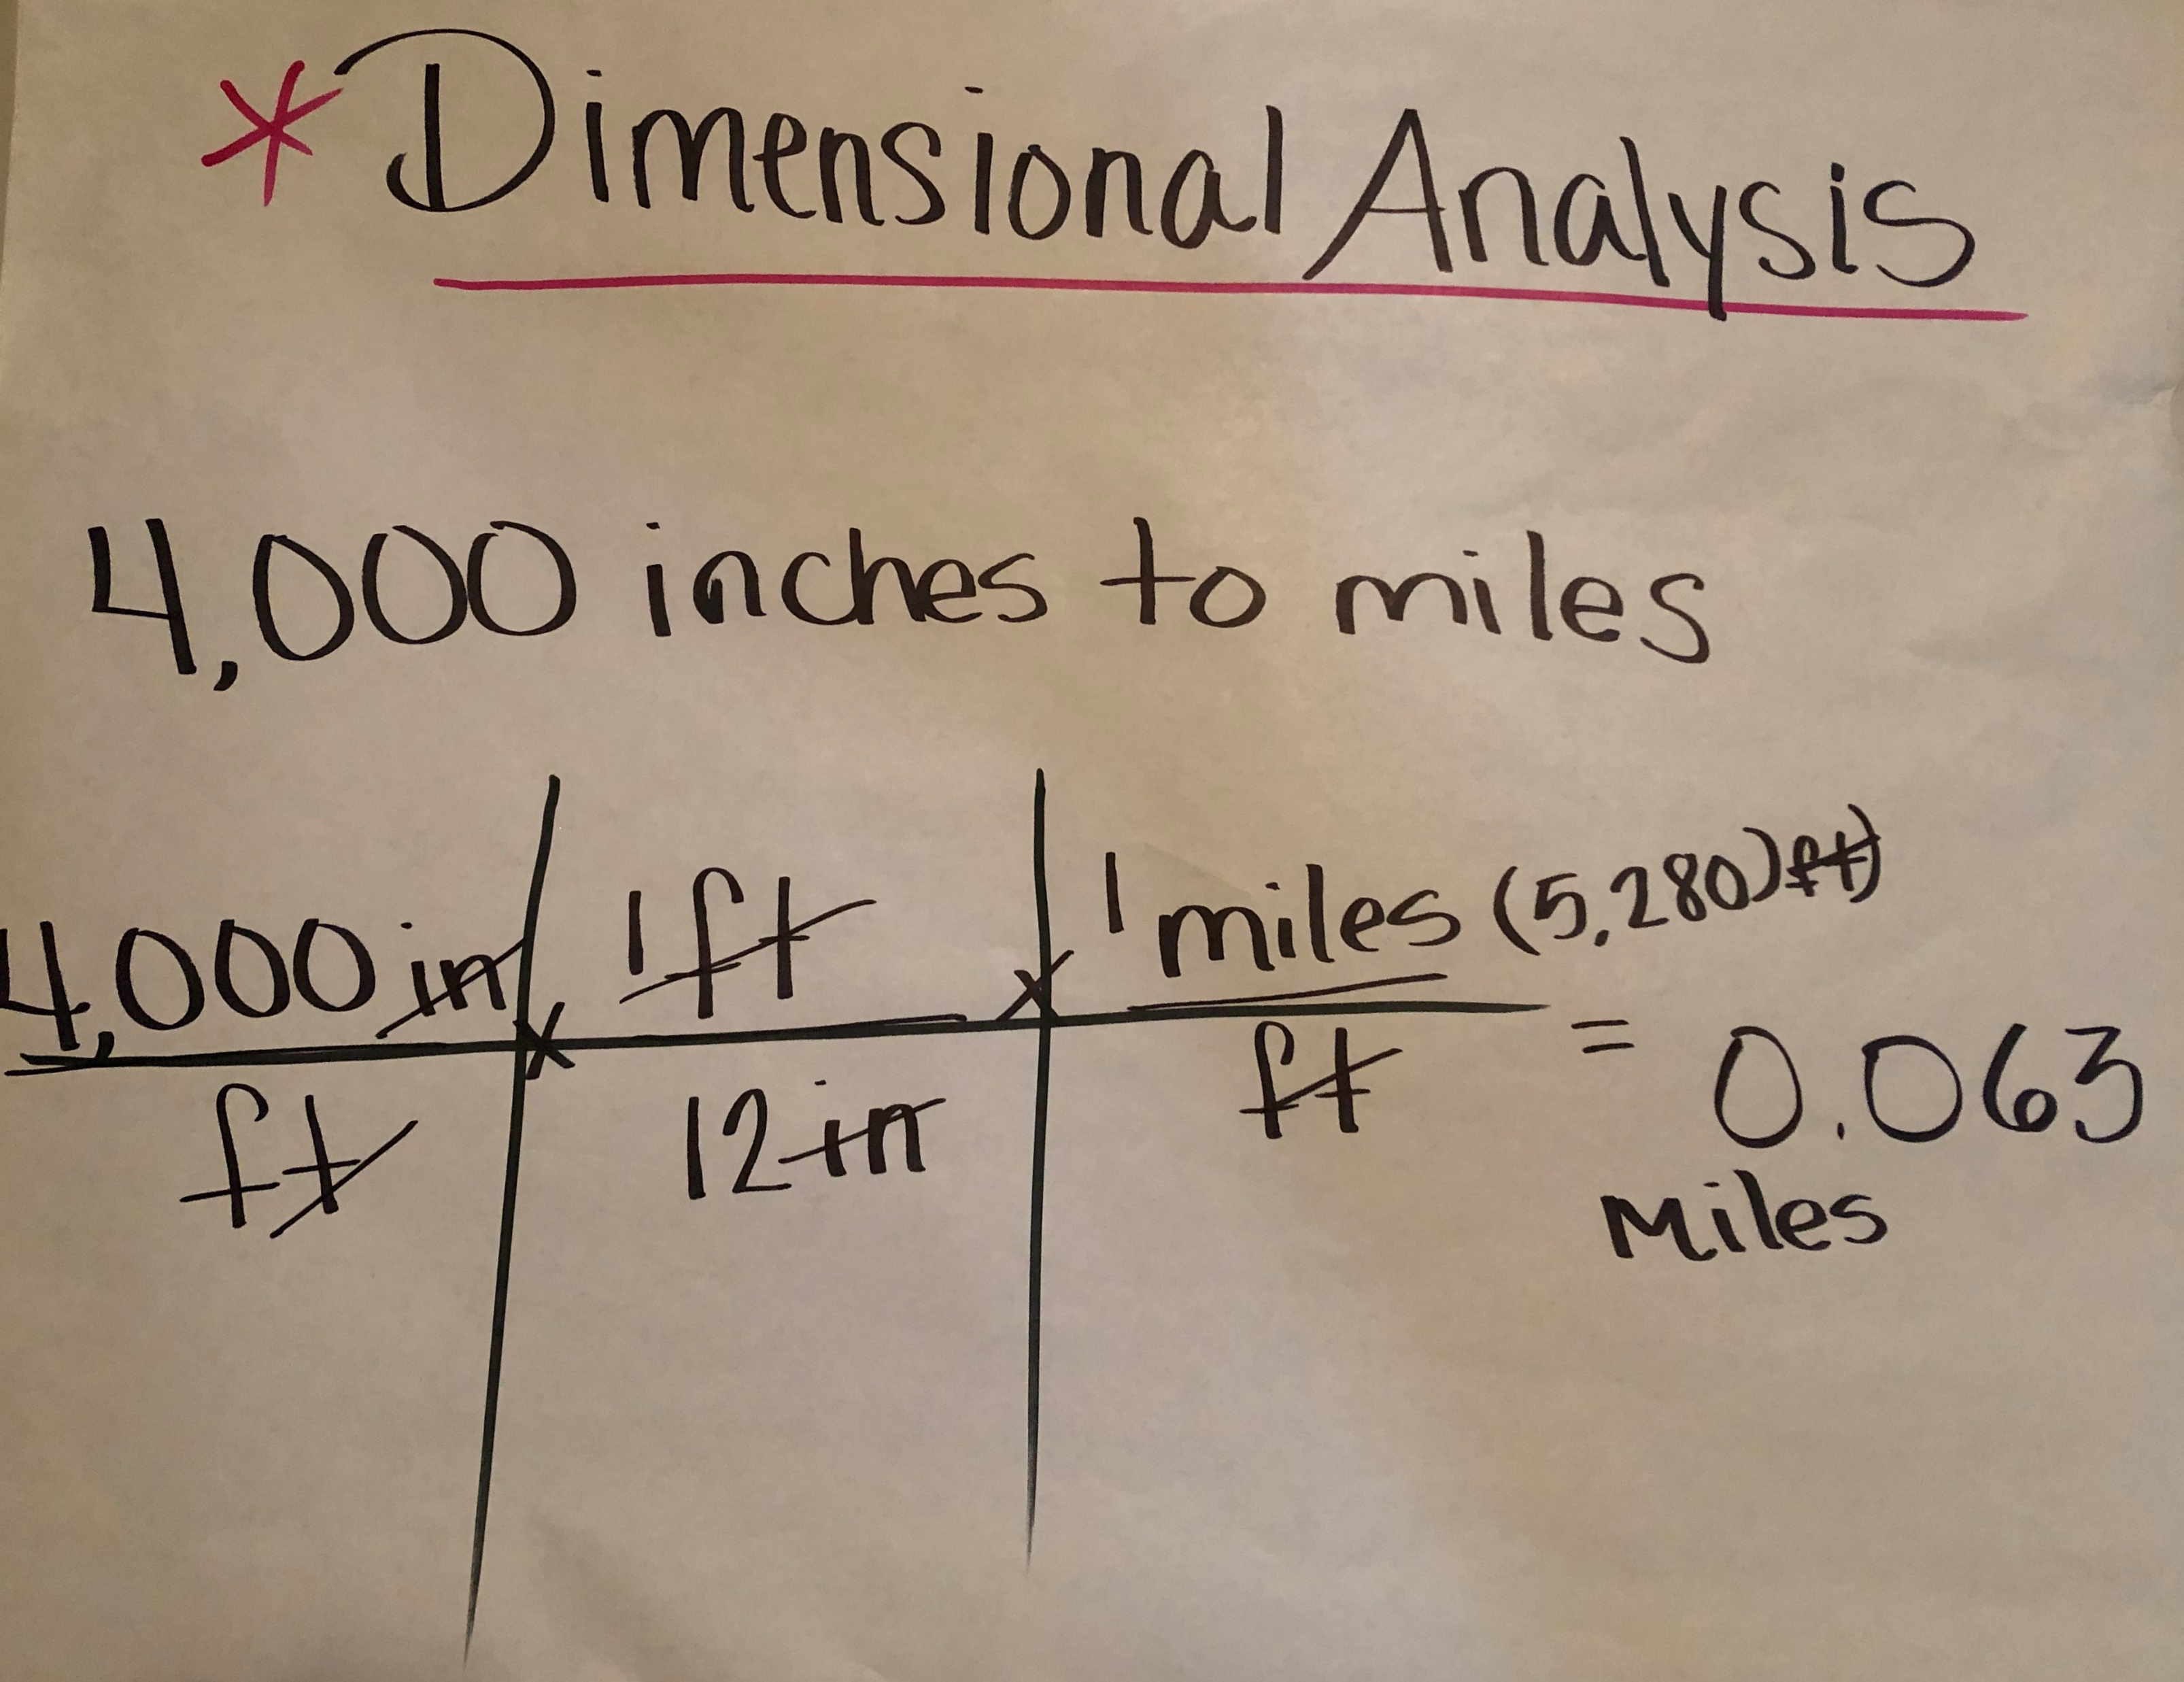 * Dimensional Analysis
4,000 inches to miles
4,000 in x 1 ft x 1 miles (5,280) ft)
ft 12 in ft = 0.063
Miles